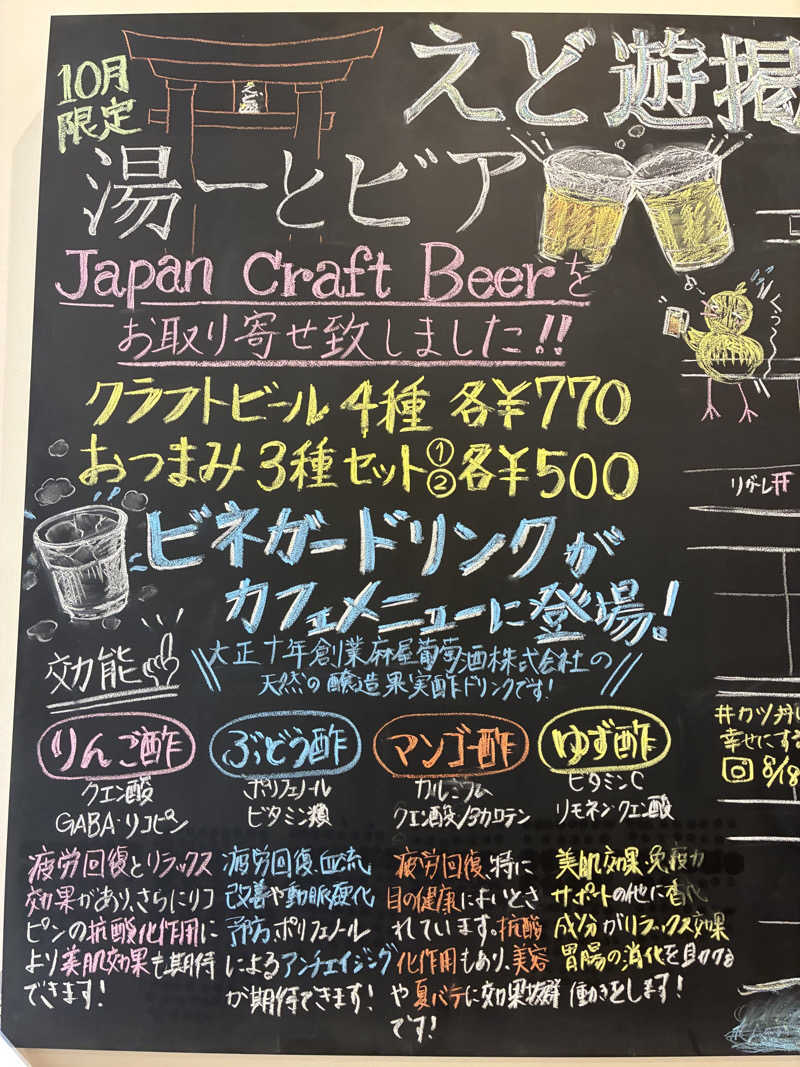 えど遊掲
10月
限定
湯ーとビア
Japan Craft Beerを
お取り寄せ致しました!!
クラフトビール4種 各¥770
おつまみ3種セット①②各¥500
ビネガードリンクが
カフェメニューに登場!
効能
大正十年創業麻屋葡萄酒株式会社の
天然の醸造果実酢ドリンクです!
りんご酢
クエン酸
GABA・リコピン
疲労回復とリラックス
効果があり、さらにリコ
ピンの抗酸化作用に
より美肌効果も期待
できます!
ぶどう酢
ポリフェノール
ビタミン類
疲労回復、血流
改善や動脈硬化
予防、ポリフェノール
によるアンチエイジング
が期待できます!
マンゴー酢
カルシウム
クエン酸/βカロテン
疲労回復、特に
目の健康によいとさ
れています。抗酸
化作用もあり、美容
や夏バテに効果抜群
です!
ゆず酢
ビタミンC
リモネン・クエン酸
美肌効果、免疫力
サポートの他に香り
成分がリラックス効果
胃腸の消化を助ける
働きをします!
ぐぅ〜
#カツ丼
幸せにする